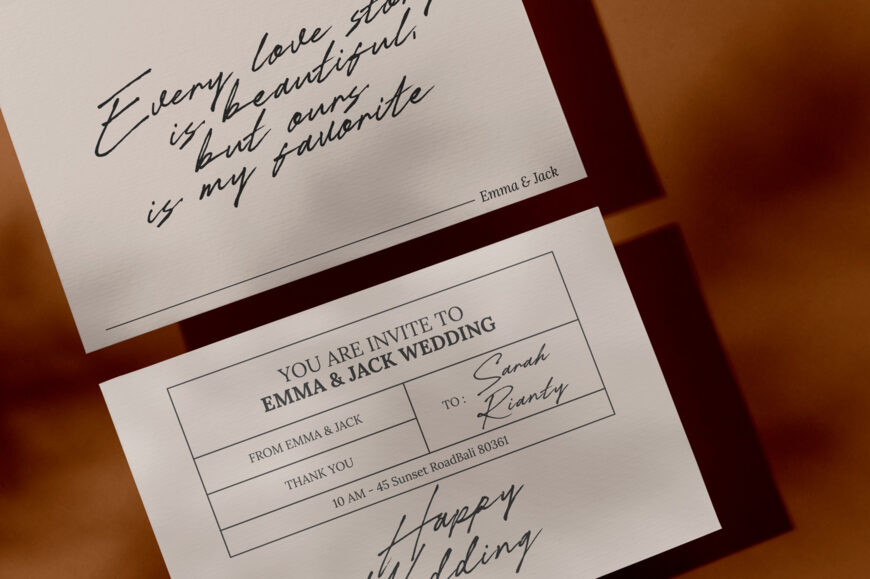 Every love story
is beautiful,
but ours
is my favorite
Emma & Jack
YOU ARE INVITE TO
EMMA & JACK WEDDING
FROM EMMA & JACK
THANK YOU
TO :
Sarah
Rianty
10 AM - 45 Sunset RoadBali 80361
Happy
Wedding